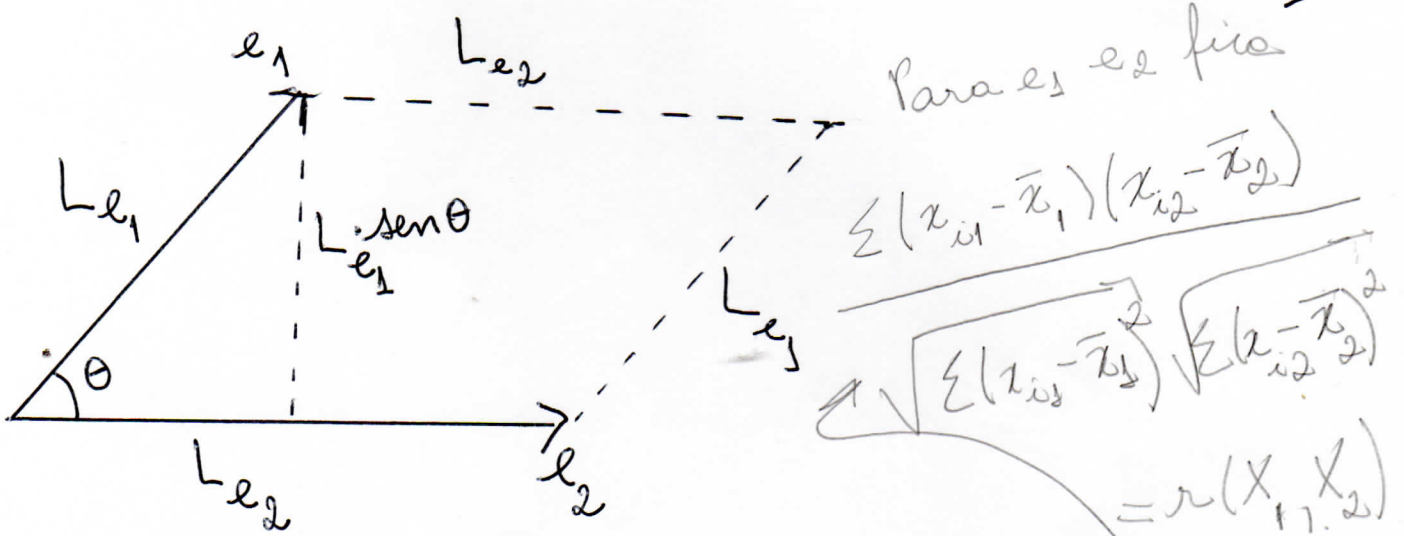 e₁
L e₂
L e₁
L e₁ · sen θ
L e₁
θ
L e₂
e₂
Para e₁ e₂ fica
Σ(x_{i1} - x̄₁)(x_{i2} - x̄₂)
√Σ(x_{i1} - x̄₁)² √Σ(x_{i2} - x̄₂)²
= r(X₁, X₂)